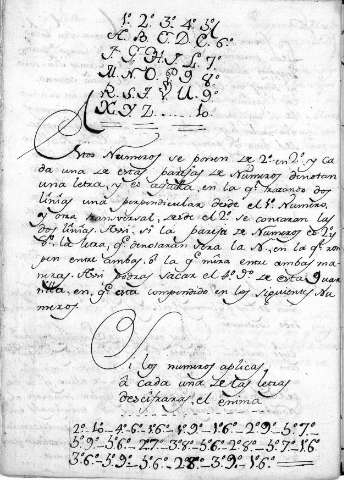 1º 2º 3º 4º 5º
A. B. C. D. E. 6º
F. G. H. I. L. 7º
M. N. O. P. Q. 8º
R. S. T. V. U. 9º
X. Y. Z. 10.
Estos Numeros se ponen de 2º en 2º, y Ca
da una de estas parejas de Numeros denotan
una letra, y es aquella, en la qº. tirando dos
lineas una perpendicular desde el 1º Numero,
y otra transversal, desde el 2º se cortaran las
dos lineas. Assi, si la pareja de Numeros es 2º y
8º la letra, qº denotaran sera la N. en la qº rom
pen entre ambos, ô la qº mira entre ambas ma
neras. Assi podras sacar el de esta quar
tilla, en qº esta compendido en los siguientes Nu
meros.
Si los numeros aplicas
a cada una de las letras
descifraras el enima
2º 10_4º6_1º6_1º9_1º6_2º9_5º7º_
5º9_5º6_2º7_3º8_5º6_2º8_5º7_1º6º
3º6_5º9_5º6_2º8_3º9_1º6º